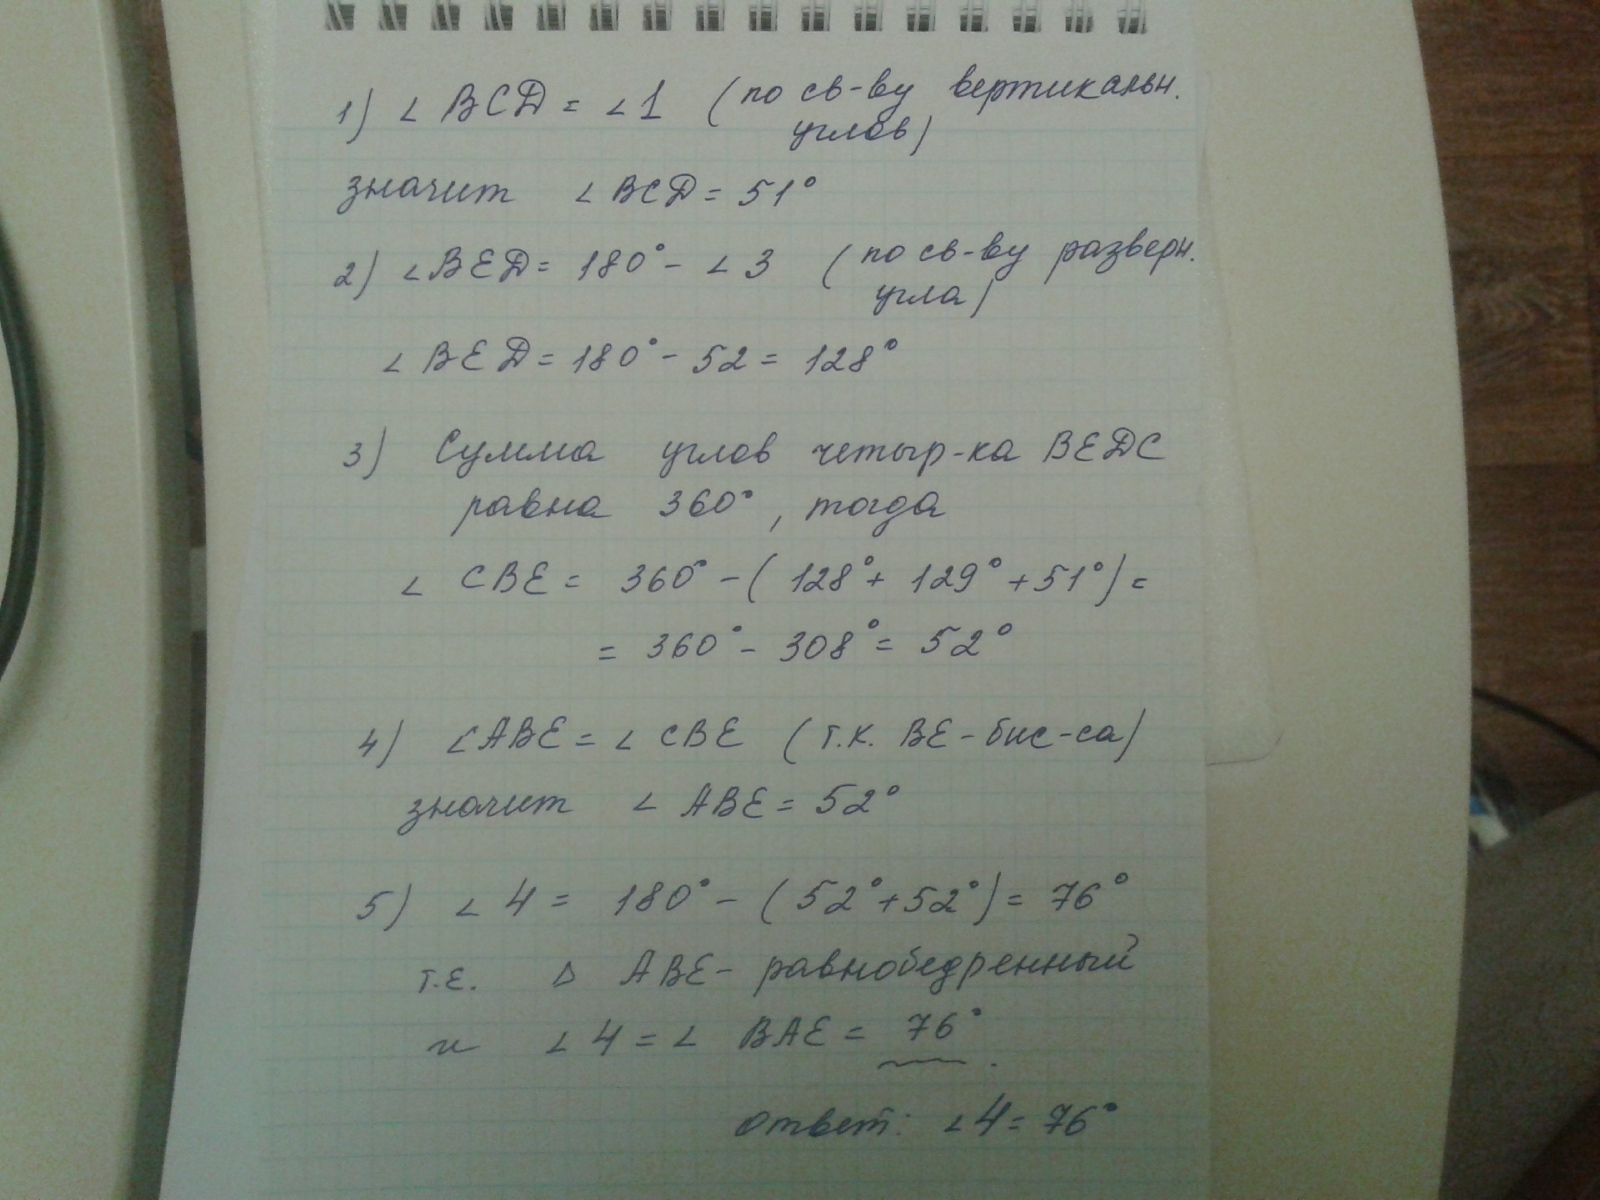 1) ∠ BCD = ∠1 (по св-ву вертикальн.
углов)
значит ∠BCD = 51°
2) ∠BED = 180° - ∠3 (по св-ву разверн.
угла)
∠BED = 180° - 52 = 128°
3) Сумма углов четыр-ка BEDC
равна 360°, тогда
∠ CBE = 360° - (128° + 129° + 51°) =
= 360° - 308° = 52°
4) ∠ABE = ∠ CBE (т.к. BE - бис-са)
значит ∠ ABE = 52°
5) ∠ 4 = 180° - (52° + 52°) = 76°
т.е. Δ ABE - равнобедренный
и ∠4 = ∠ BAE = 76°.
Ответ: ∠4 = 76°